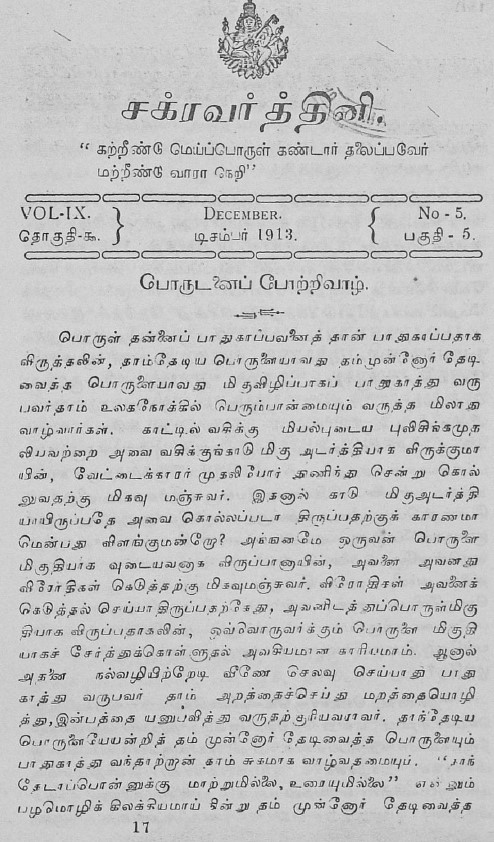 சக்ரவர்த்தினி.
“ கற்றீண்டு மெய்ப்பொருள் கண்டார் தலைப்படுவேர்
மற்றீண்டு வாரா நெறி”
VOL-IX. DECEMBER. No - 5.
தொகுதி-௯. டிசம்பர் 1913. பகுதி - 5.
பொருடனைப் போற்றிவாழ்.
பொருள் தன்னைப் பாதுகாப்பவனைத் தான் பாதுகாப்பதாக
விருத்தலின், தாம்தேடிய பொருளையாவது தம்முன்னோர் தேடி
வைத்த பொருளையாவது மிகுவிழிப்பாகப் பாதுகாத்து வரு
பவர்தாம் உலகநோக்கில் பெரும்பான்மையும் வருத்த மிலாது
வாழ்வார்கள். காட்டில் வசிக்கு மியல்புடைய புலிசிங்கமுத
லியவற்றை அவை வசிக்குங்காடு மிகு அடர்த்தியாக விருக்குமா
யின், வேட்டைக்காரர் முதலியோர் துணிந்து சென்று கொல்
லுவதற்கு மிகவு மஞ்சுவர். இதனால் காடு மிகுஅடர்த்தி
யாயிருப்பதே அவை கொல்லப்படா திருப்பதற்குக் காரணமா
மென்பது விளங்குமன்றோ? அங்ஙனமே ஒருவன் பொருளை
மிகுதியாக வுடையவனாக விருப்பானாயின், அவனை அவனது
விரோதிகள் கெடுத்தற்கு மிகவுமஞ்சுவர். விரோதிகள் அவனைக்
கெடுத்தல் செய்யாதிருப்பதற்கேது, அவனிடத்துப்பொருள்மிகு
தியாக விருப்பதாகலின், ஒவ்வொருவர்க்கும் பொருளை மிகுதி
யாகச் சேர்த்துக்கொள்ளுதல் அவசியமான காரியமாம். ஆனால்
அதனை நல்வழியிற்றேடி வீணே செலவு செய்யாது பாது
காத்து வருபவர் தாம் அறத்தைச்செய்து மறத்தையொழி
த்து,இன்பத்தை யனுபவித்து வருதற்குரியவராவர். தாந்தேடிய
பொருளையேயன்றித் தம் முன்னோர் தேடிவைத்த பொருளையும்
பாதுகாத்து வந்தாற்றான் தாம் சுகமாக வாழ்வதமையும். “தாந்
தேடாப்பொன்னுக்கு மாற்றுமில்லை, உரையுமில்லை” என்னும்
பழமொழிக் கிலக்கியமாய் நின்று தம் முன்னோர் தேடிவைத்த
17